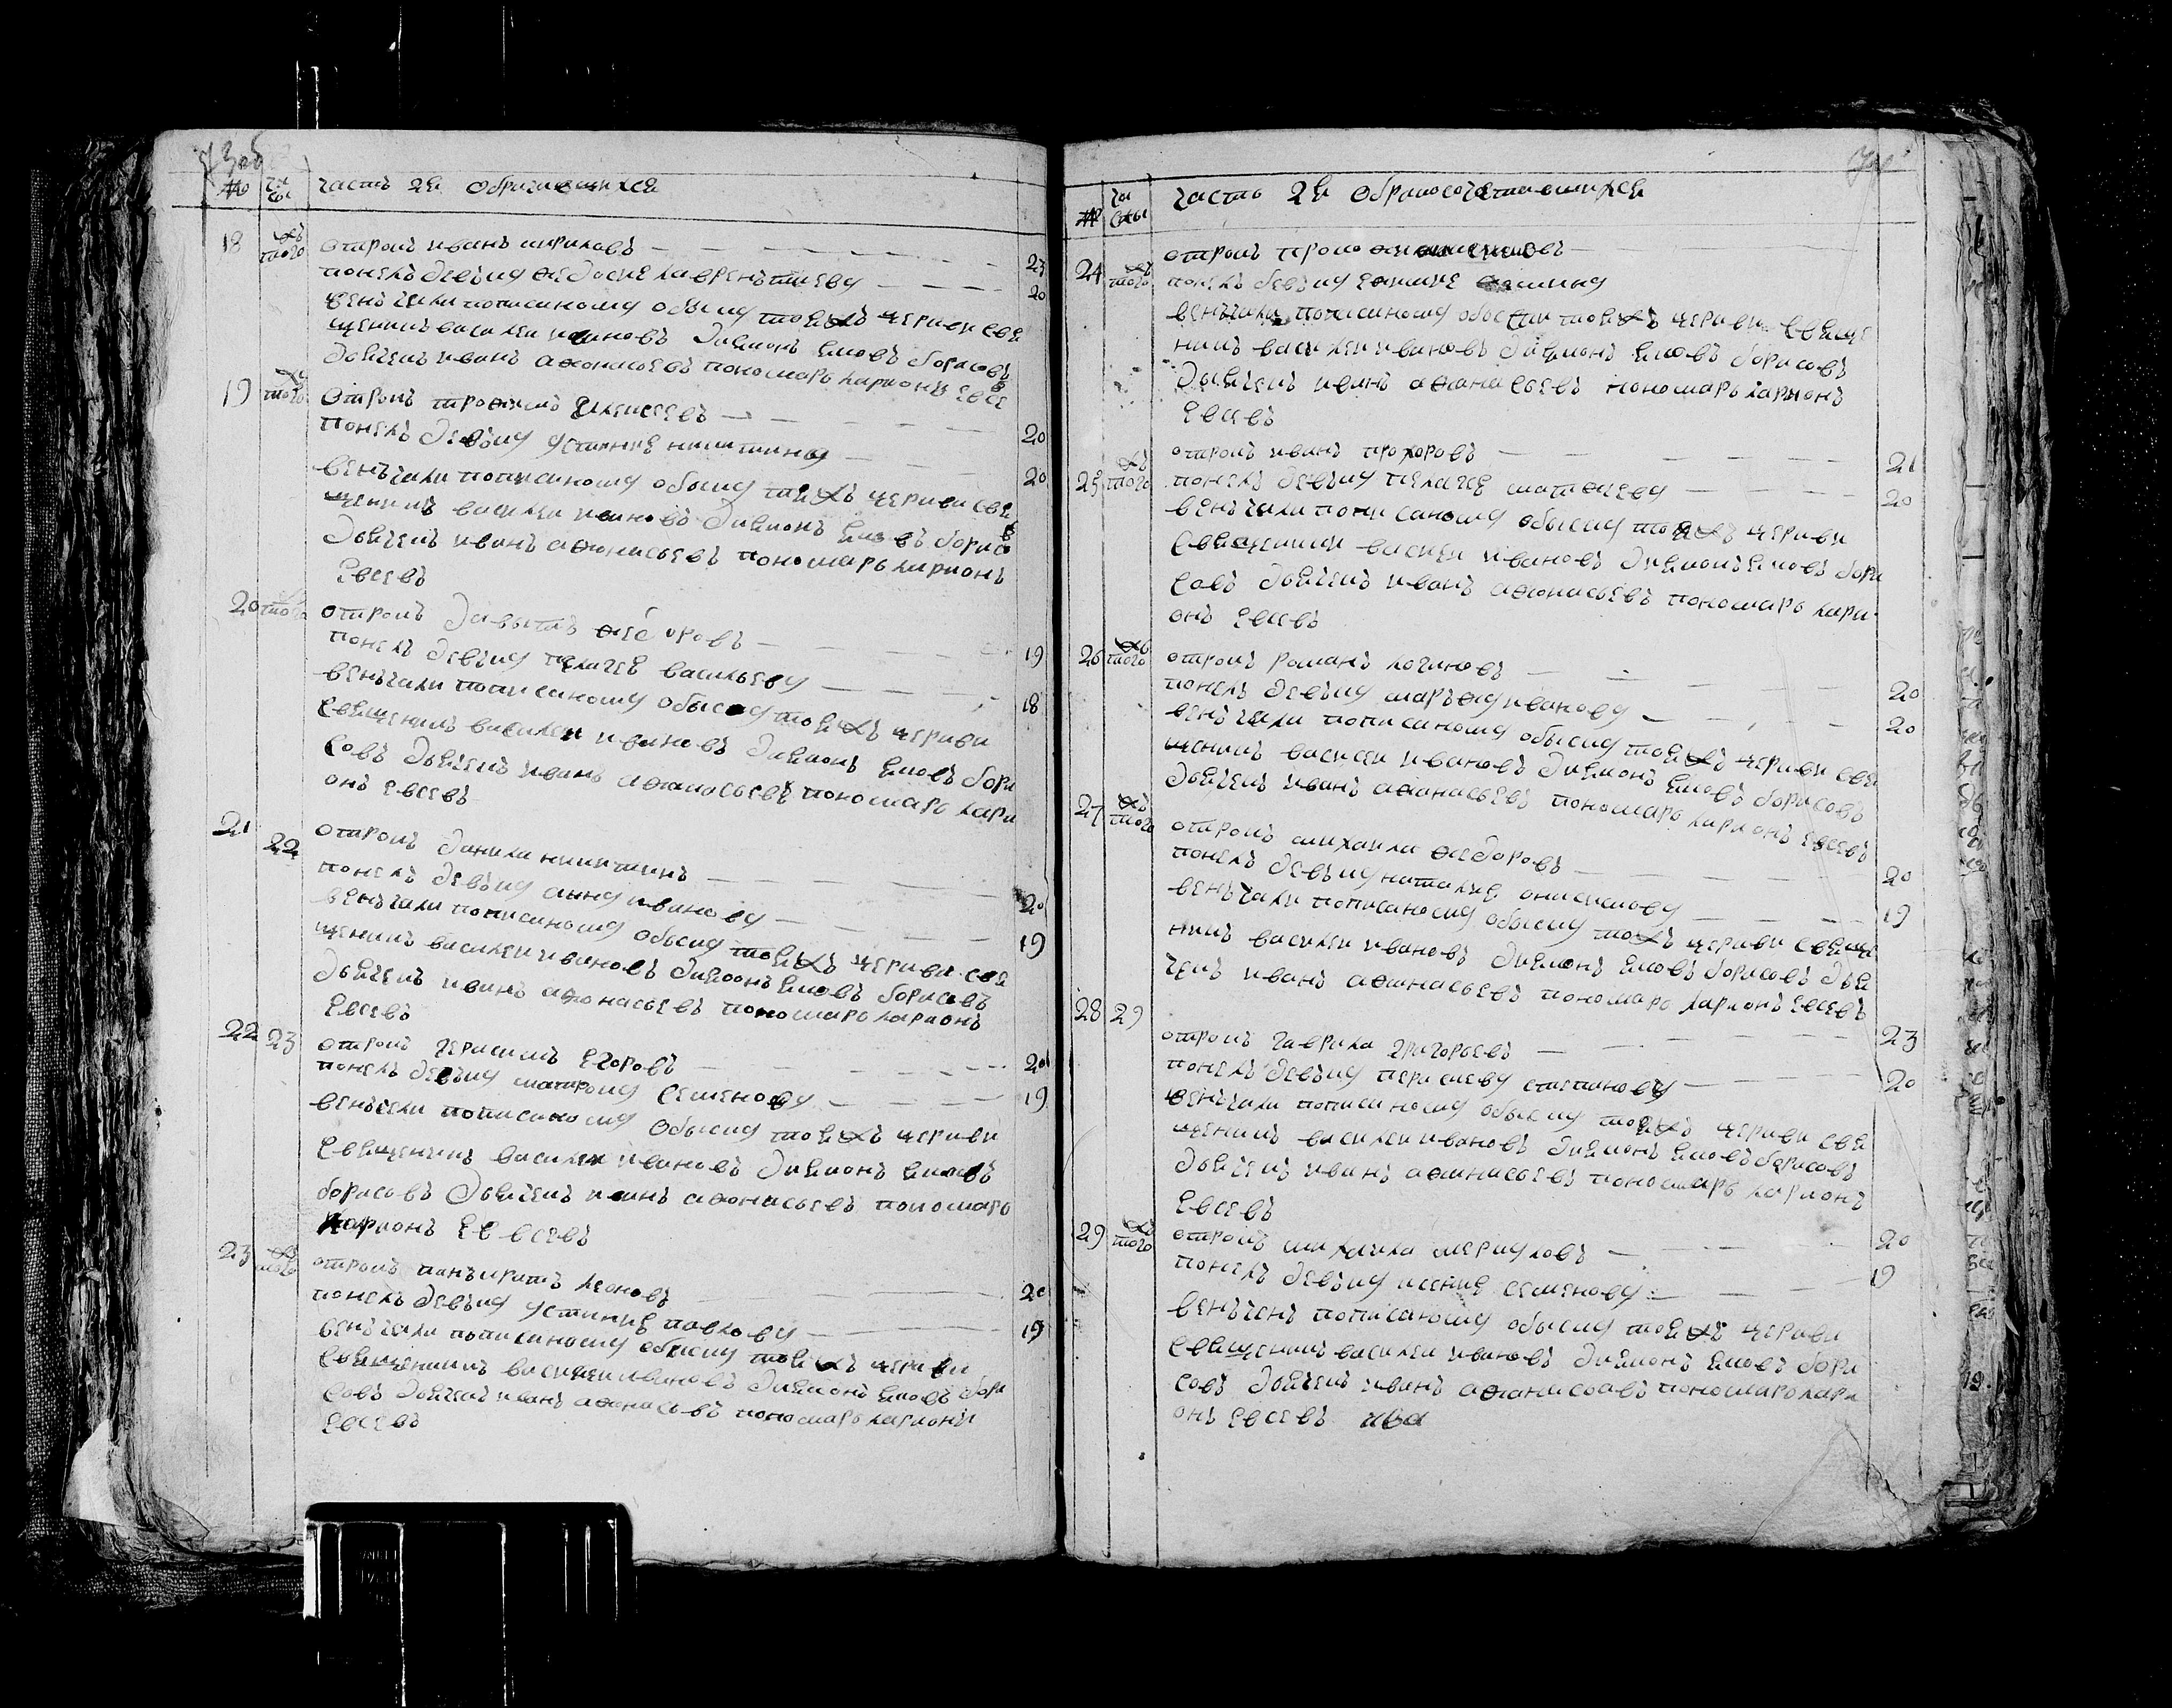 73об
№ чи слы часть 2я обрачившихся
18 того отрокъ иванъ кириловъ 23
понелъ девъку федосие лаврентьеву 20
венчали пописаному обыску тояжъ церкви свя
щенникъ василеи ивановъ диаконъ яковъ борисовъ
дьячекъ иванъ афонасьевъ пономарь ларионъ евсе
въ
19 того отрокъ трофимъ алексеевъ 20
понелъ девъку устиние никитину 20
венъчали пописаному обыску тояжъ церкви свя
щенникъ василеи ивановъ диаконъ яковъ борисо
въ
дьячекъ иванъ афонасьевъ пономарь ларионъ
евсевъ
20 того отрокъ давытъ федоровъ 19
понелъ девъку пелагее васильеву 18
венъчали пописаному обыску тояжъ церкви
священникъ василеи ивановъ диаконъ яковъ бори
совъ дьячекъ иванъ афонасьевъ пономарь лари
онъ евсевъ
21 22 отрокъ данила никитинъ 20
понелъ девъку анну иванову 19
венъчали пописаному обыску тояжъ церкви свя
щенникъ василеи ивановъ диаконъ яковъ борисовъ
дьячекъ иванъ афонасьевъ пономарь ларионъ
евсевъ
22 23 отрокъ герасимъ егоровъ 20
понелъ девъку матрону семенову 19
венъчели пописаному обыску тояжъ церкви
священникъ василеи ивановъ диаконъ яковъ
борисовъ дьячекъ иванъ афонасьевъ пономарь
ларионъ евсевъ
23 того отрокъ панъкратъ леоновъ 20
понелъ девъку устиние павлову 19
венъчали пописаному обыску тояжъ церкви
священникъ василеи ивановъ диаконъ яковъ бори
совъ дьячекъ иванъ афонасьевъ пономарь ларионъ
евсевъ
№ чи слы часть 2я обракосочетавшихся
24 того отрокъ
понелъ девъку фомину
венъчали пописаному обыску тояжъ церкви свяще
никъ василеи ивановъ диаконъ яковъ борисовъ
дьячекъ иванъ афанасьевъ пономарь ларионъ
евсевъ
25 того отрокъ иванъ прохоровъ 21
понелъ девъку пелагее матфееву 20
венъчали пописаному обыску тояжъ церкви
священники василеи ивановъ диаконъ яковъ бори
совъ дьячекъ иванъ афонасьевъ пономарь лари
онъ евсевъ
26 того отрокъ романъ логиновъ 20
понелъ девъку маръфу иванову 20
венъчали пописаному обыску тояжъ церкви свя
щеникъ василеи ивановъ диаконъ яковъ борисовъ
дьячекъ иванъ афонасьевъ пономарь ларионъ евсевъ
27 того отрокъ михаила федоровъ 20
понелъ девъку наталие онисимову 19
венъчали пописаному обыску тояжъ церкви священ
никъ василеи ивановъ диаконъ яковъ борисовъ дья
чекъ иванъ афонасьевъ пономарь ларионъ евсевъ
28 29 отрокъ гаврила григорьевъ 23
понелъ девъку степанову 20
венъчали пописаному обыску тояжъ церкви свя
щеникъ василеи ивановъ диаконъ яковъ борисовъ
дьячекъ иванъ афонасьевъ пономарь ларионъ
евсевъ
29 того отрокъ михаила меркуловъ 20
понелъ девъку ксение семенову 19
венъченъ пописаному обыску тояжъ церкви
священикъ василеи ивановъ диаконъ яковъ бори
совъ дьячекъ иванъ афонасоавъ пономарь лари
онъ евсевъ